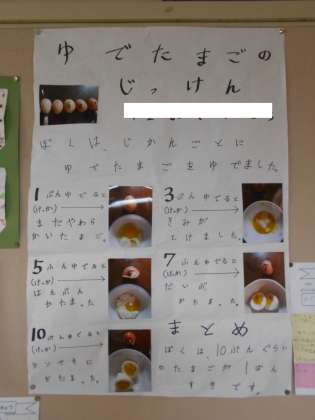 ゆでたまごの
じっけん
ぼくは、じかんごとに
ゆでたまごをゆでました。
1ぷんゆでると
(けっか)
まだやわら
かいたまご。
3ぷんゆでると
(けっか)
きみが
とけました。
5ふんゆでると
(けっか)
はんぶん
かたまった。
7ふんゆでると
(けっか)
だいぶ
かたまった。
10ぷんゆでると
(けっか)
かたまった。
まとめ
ぼくは10ぷんぐらい
のたまごが1ばん
すきです。